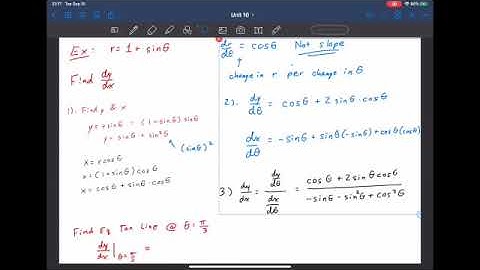 Unit 10
Ex: r = 1 + sinθ
Find dy/dx
1). Find y & x
y = r sinθ = (1 + sinθ) sinθ
y = sinθ + sin²θ
(sinθ)²
x = r cosθ
x = (1 + sinθ) cosθ
x = cosθ + sinθ · cosθ
Find Eq Tan Line @ θ = π/3
dy/dx |θ=π/3 =
dr/dθ = cosθ Not slope
change in r per change in θ
2). dy/dθ = cosθ + 2 sinθ · cosθ
dx/dθ = -sinθ + sinθ(-sinθ) + cosθ(cosθ)
3) dy/dx = (dy/dθ)/(dx/dθ) = (cosθ + 2 sinθ cosθ)/(-sinθ - sin²θ + cos²θ)